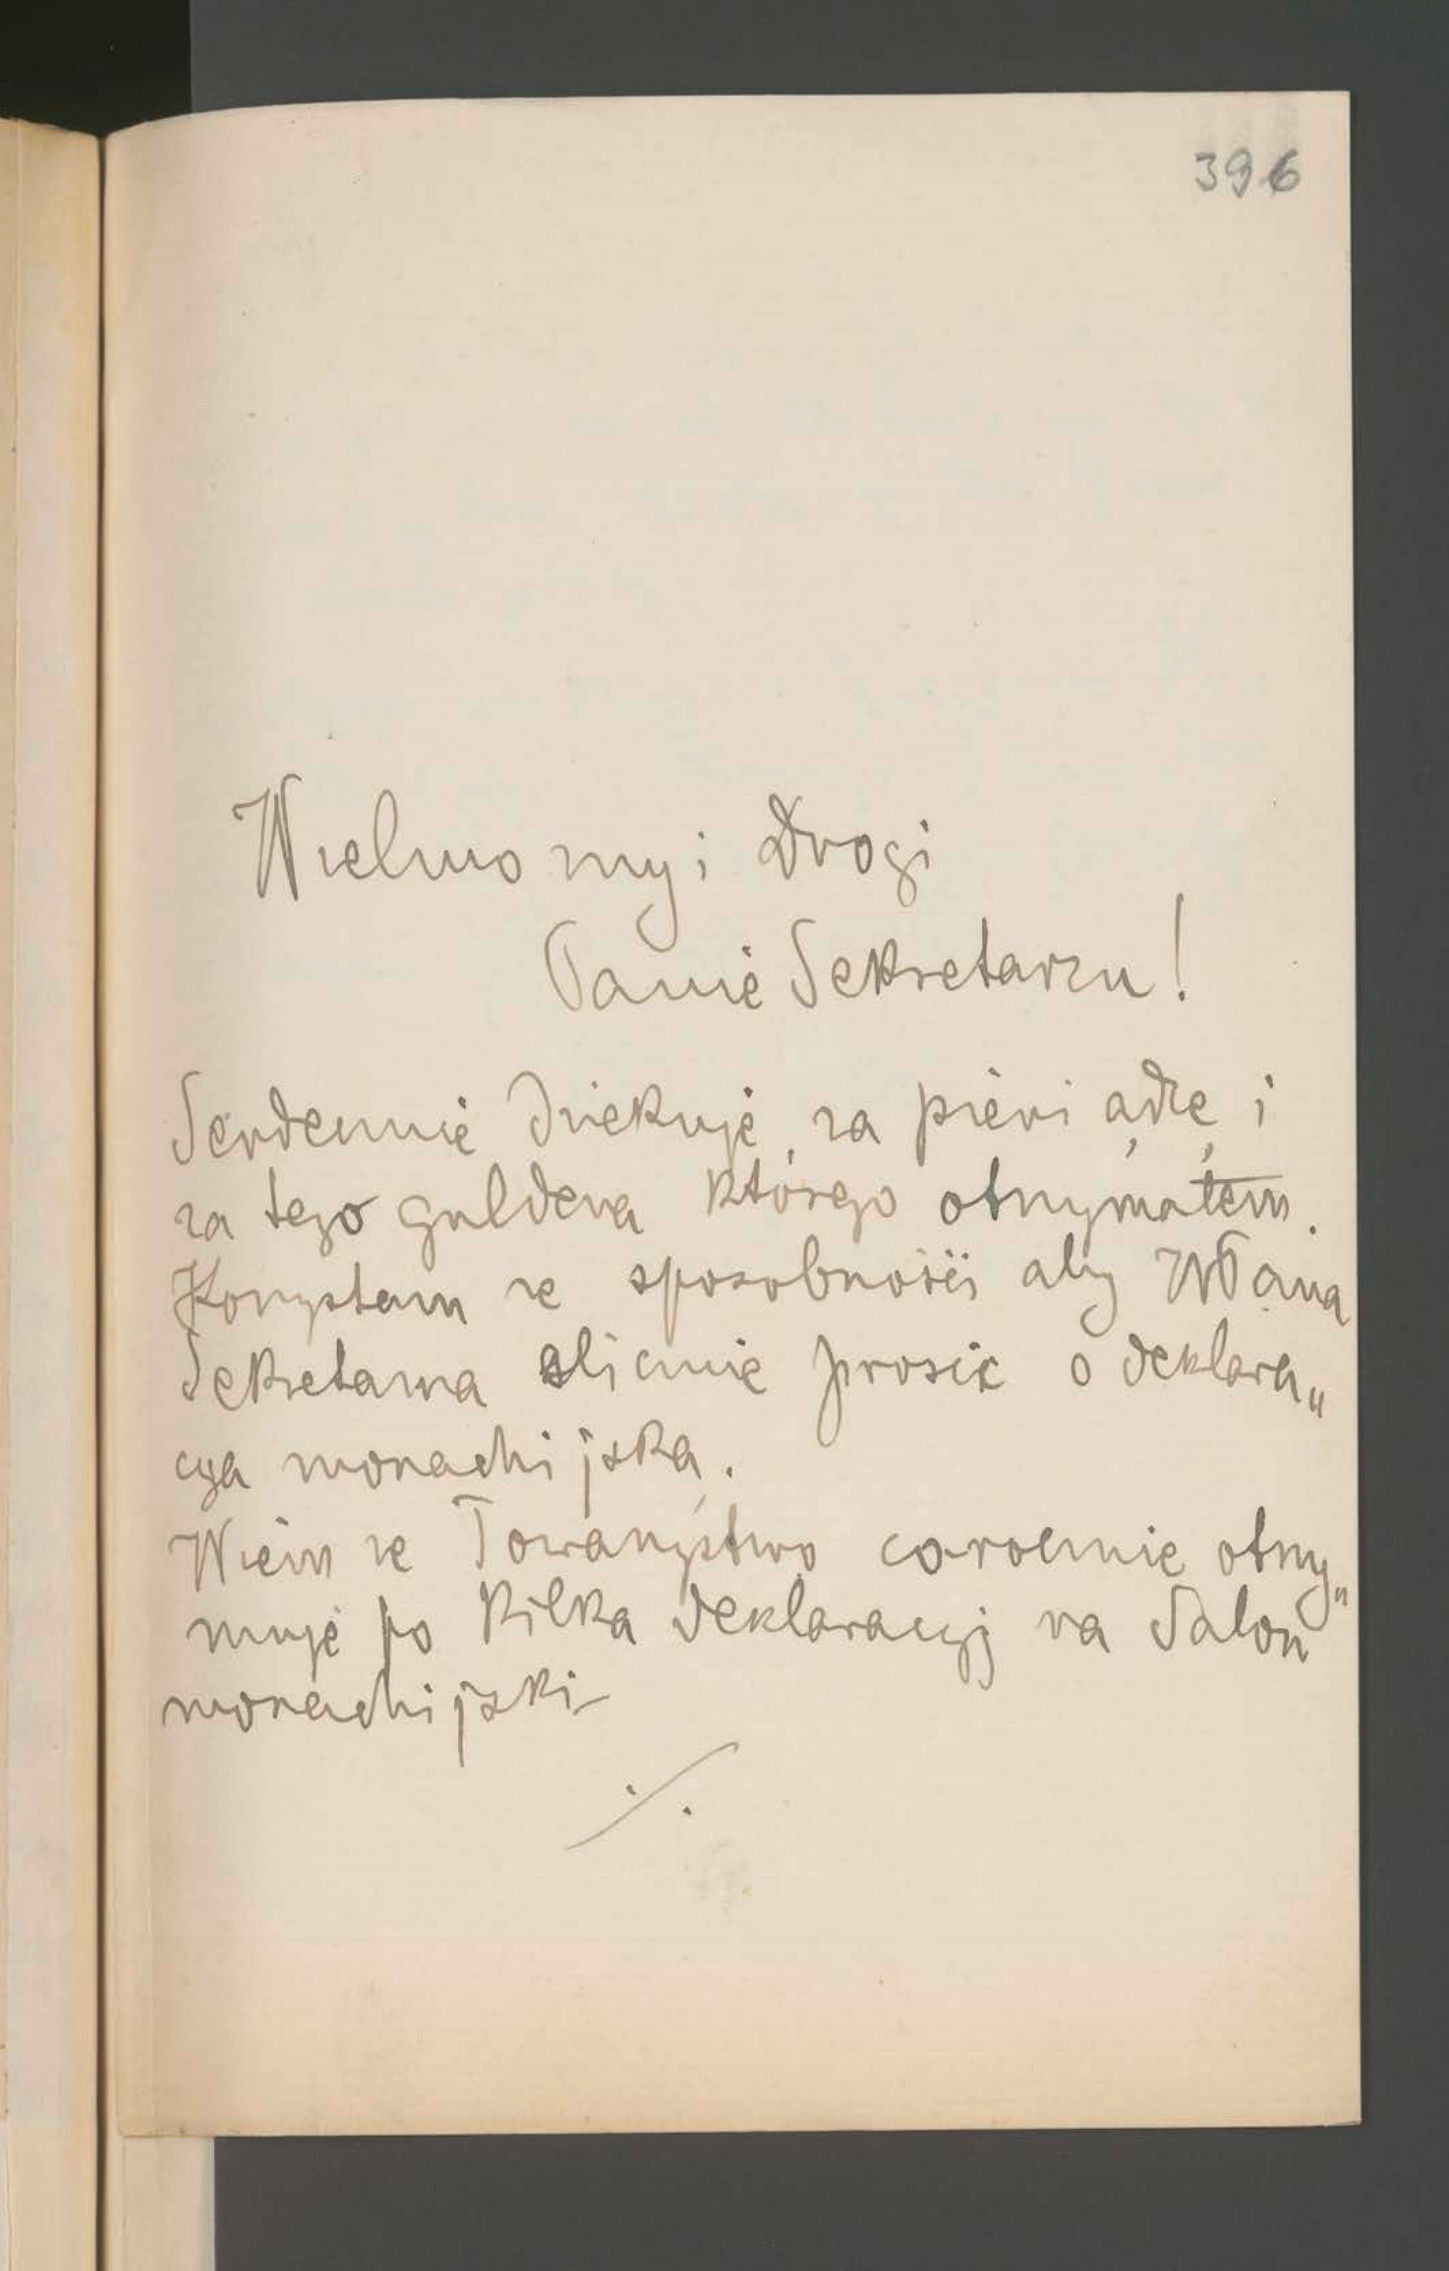 396
Wielmożny i Drogi
Panie Sekretarzu!
Serdecznie Dziekuję za pieniądze i
za tego guldena którego otrzymałem.
Korzystam ze sposobności aby WPana
Sekretarza ślicznie prosić o deklara„
cyą monachijską.
Wiem że Towarzystwo corocznie otrzy„
muje po kilka deklaracyj na Salon
monachijski
./.